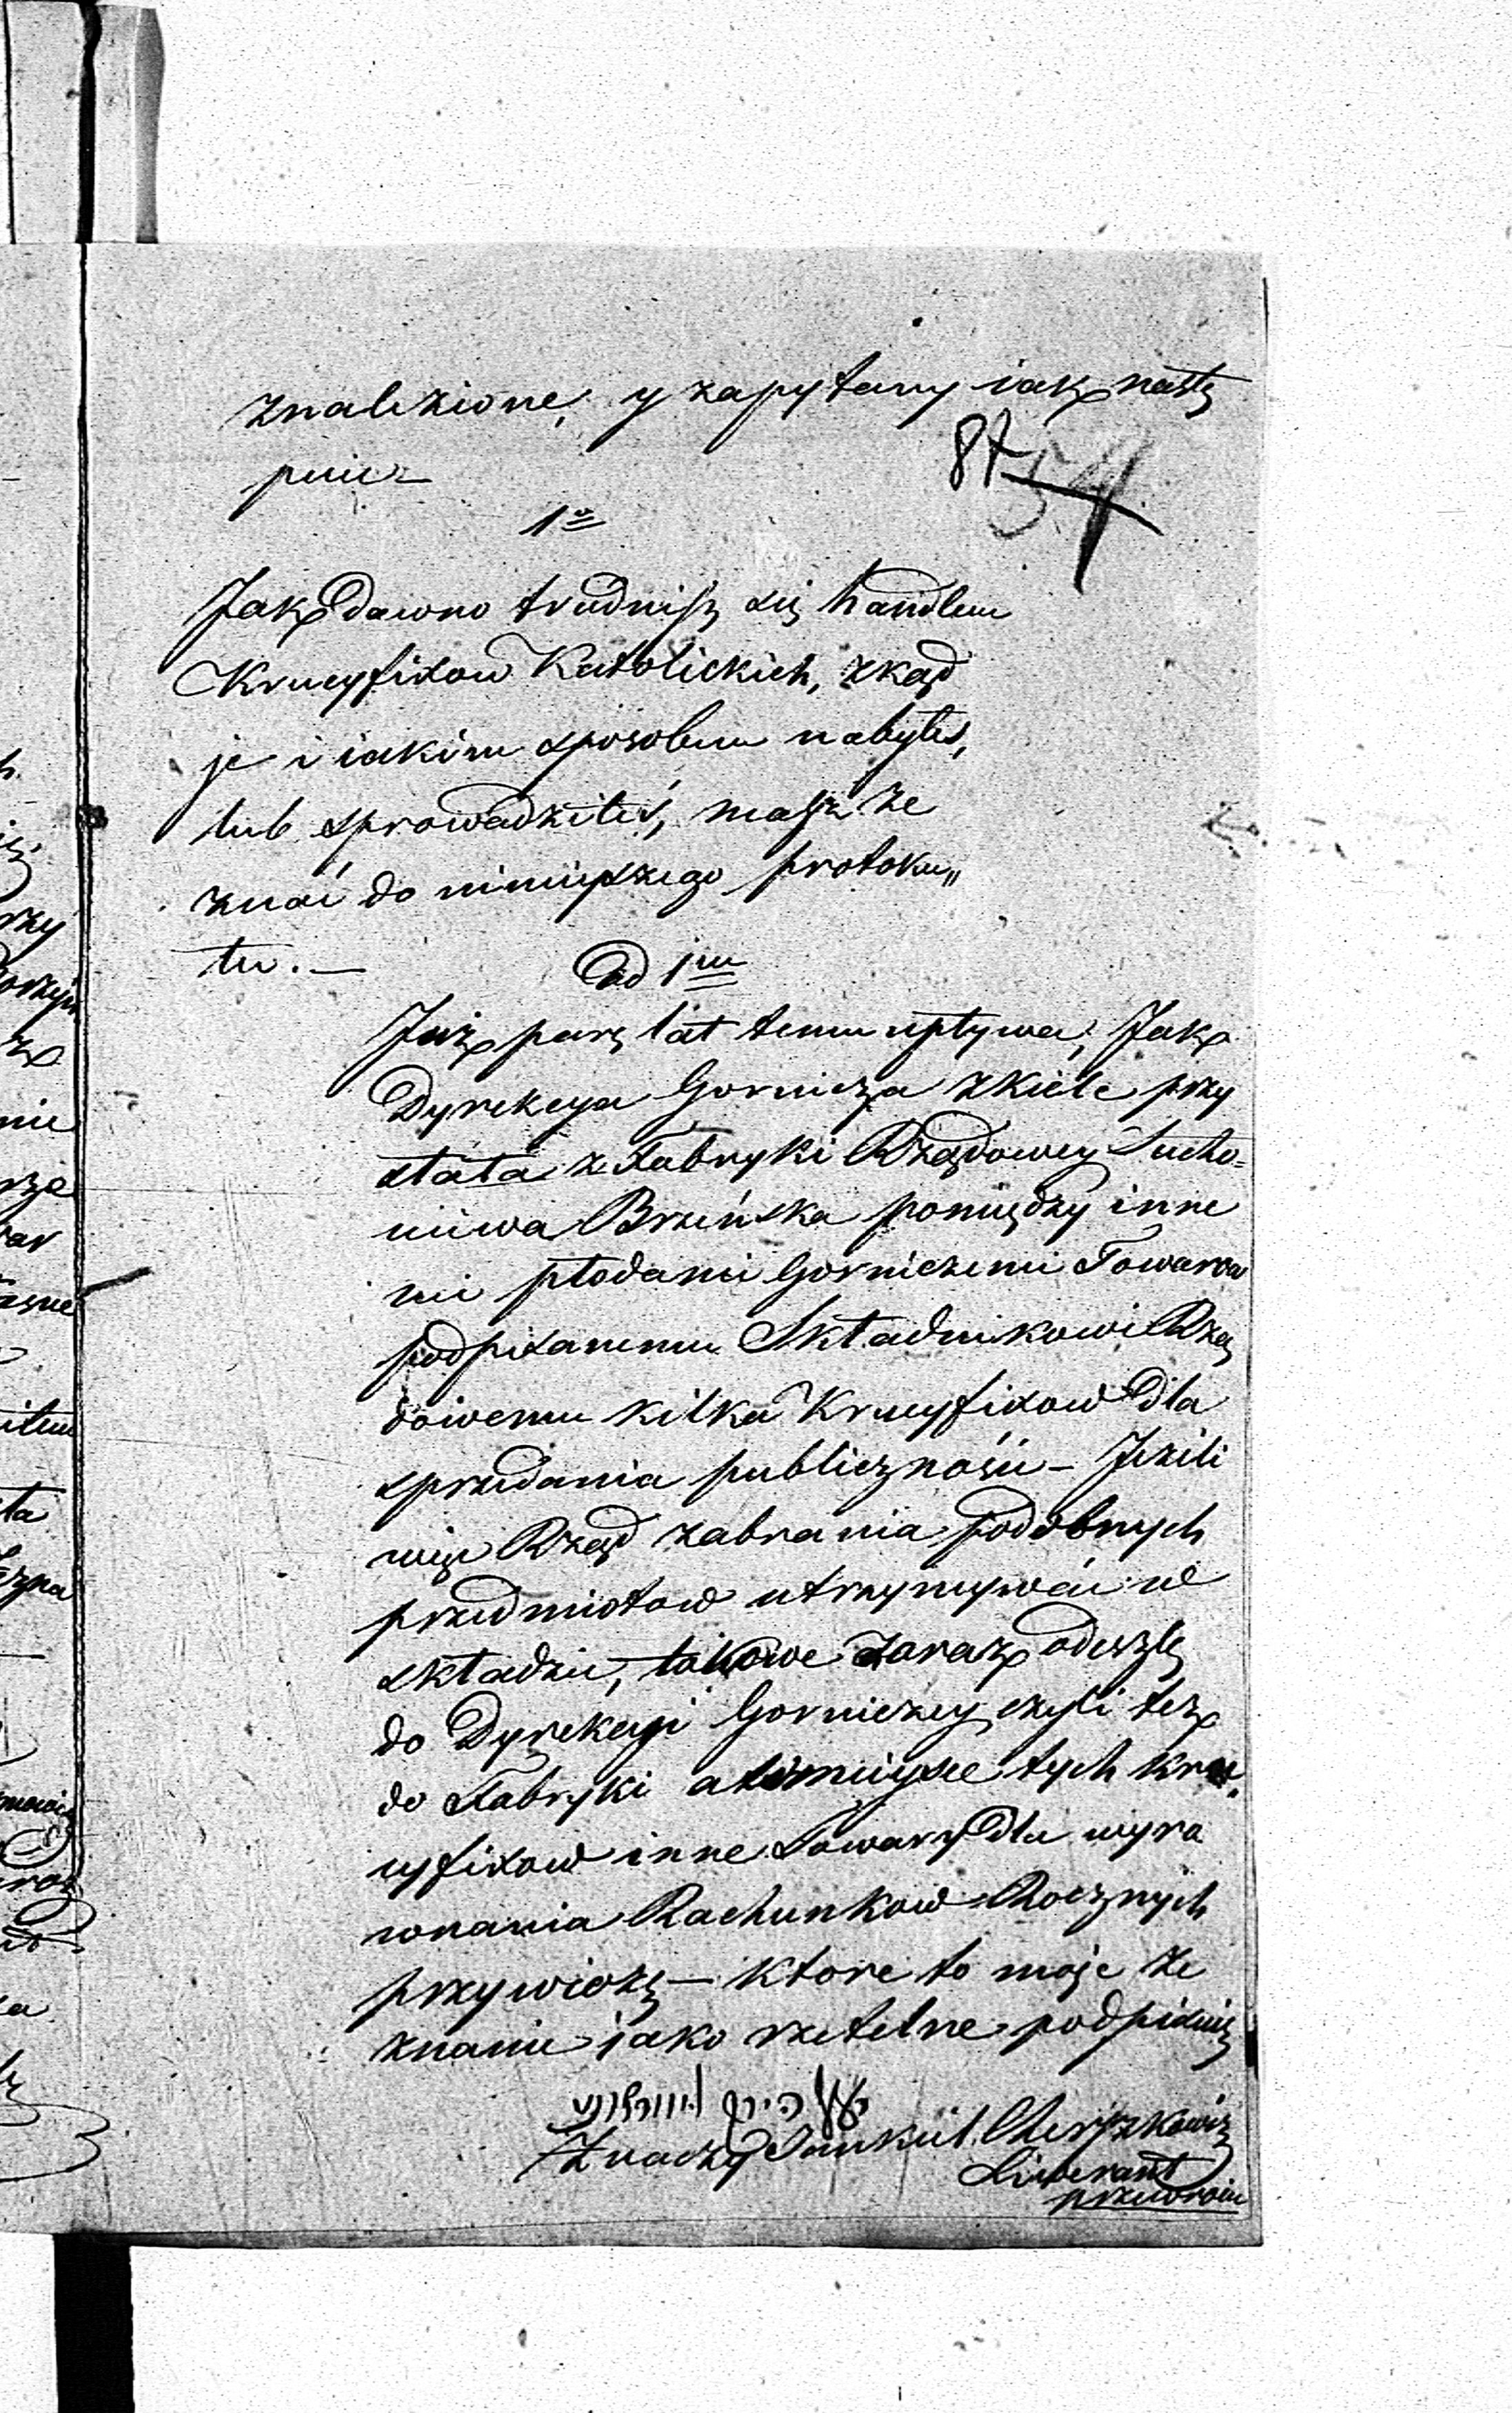 znalezione, y zapytany iak nastę
puie
87 54
1o
Jak dawno trudnisz się handlem
Krucyfixow Katolickich, zkąd
je i iakim sposobem nabyłeś,
lub sprowadziłeś, masz ze
znać do ninieyszego protoku„
łu. —
Ad 1um
Już parę lat temu upływa, Jak
Dyrekcya Gornicza z Kielc przy
słała z Fabryki Rządowey Sucho=
niwa pomiędzy inne
mi płodami Gorniczemi Towarow
podpisanemu Składnikowi Rzą
dowemu kilka Krucyfixow dla
sprzedania publiczności – Jeżeli
więc Rząd zabrania podobnych
przedmiotow utrzymywać w
składzie, takowe zaraz odeszlę
do Dyrekcyi Gorniczey czyli też
do Fabryki a wmieysce tych kru„
cyfixow inne Towary dla wyro
wnania Rachunkow Rocznych
przywiozę – ktore to moje ze
znanie iako rzetelne podpisuię
Znaczy Jankiel Herszkowicz
Liwerant